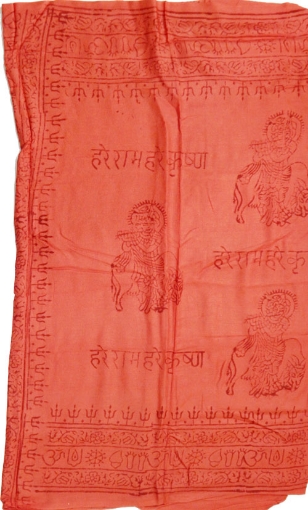 हरे राम हरे कृष्ण
हरे राम हरे कृ
हरे राम हरे कृष्ण
ॐ
ॐ